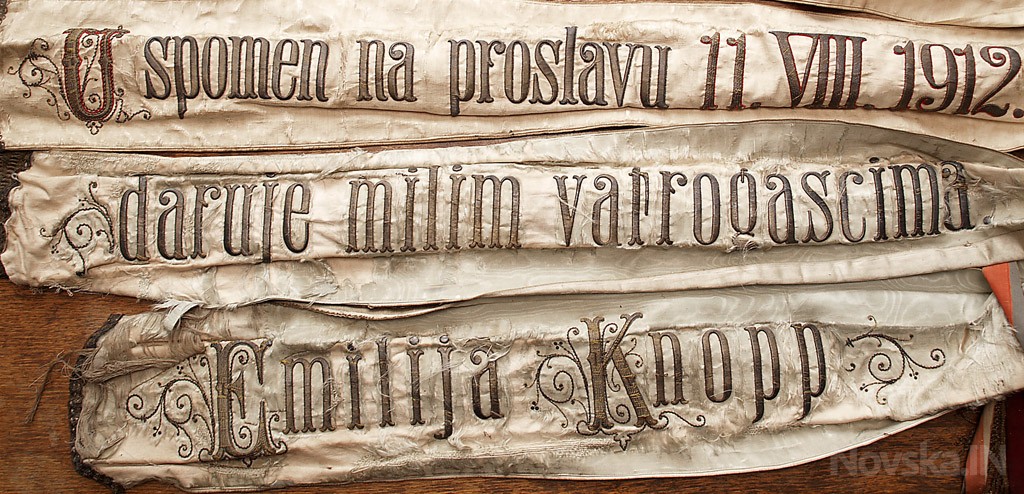 Uspomen na proslavu 11. VIII. 1912.
daruje milim vatrogascima
Emilija Knopp
Novska.IN